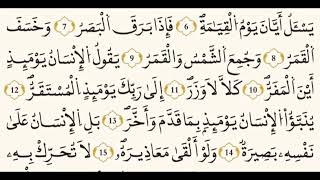 يَسْـَٔلُ أَيَّانَ يَوْمُ الْقِيَامَةِ ٦ فَإِذَا بَرِقَ الْبَصَرُ ٧ وَخَسَفَ
الْقَمَرُ ٨ وَجُمِعَ الشَّمْسُ وَالْقَمَرُ ٩ يَقُولُ الْإِنسَانُ يَوْمَئِذٍ
أَيْنَ الْمَفَرُّ ١٠ كَلَّا لَا وَزَرَ ١١ إِلَىٰ رَبِّكَ يَوْمَئِذٍ الْمُسْتَقَرُّ ١٢
يُنَبَّؤُا الْإِنسَانُ يَوْمَئِذٍ بِمَا قَدَّمَ وَأَخَّرَ ١٣ بَلِ الْإِنسَانُ عَلَىٰ
نَفْسِهِ بَصِيرَةٌ ١٤ وَلَوْ أَلْقَىٰ مَعَاذِيرَهُ ١٥ لَا تُحَرِّكْ بِهِ